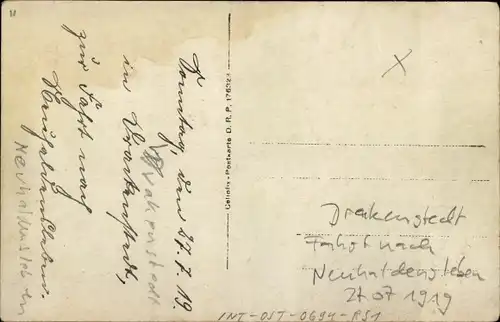 Sonntag, den 27.7.19.
in Drackenstedt,
Drakenstedt
zur Fahrt nach
Neuhaldensleben.
Neuhaldensleben
Cellofix-Postkarte D. R. P. 176323
X
Drakenstedt
Fahrt nach
Neuhaldensleben
27 07 1919
INT-OST-0694-RS1